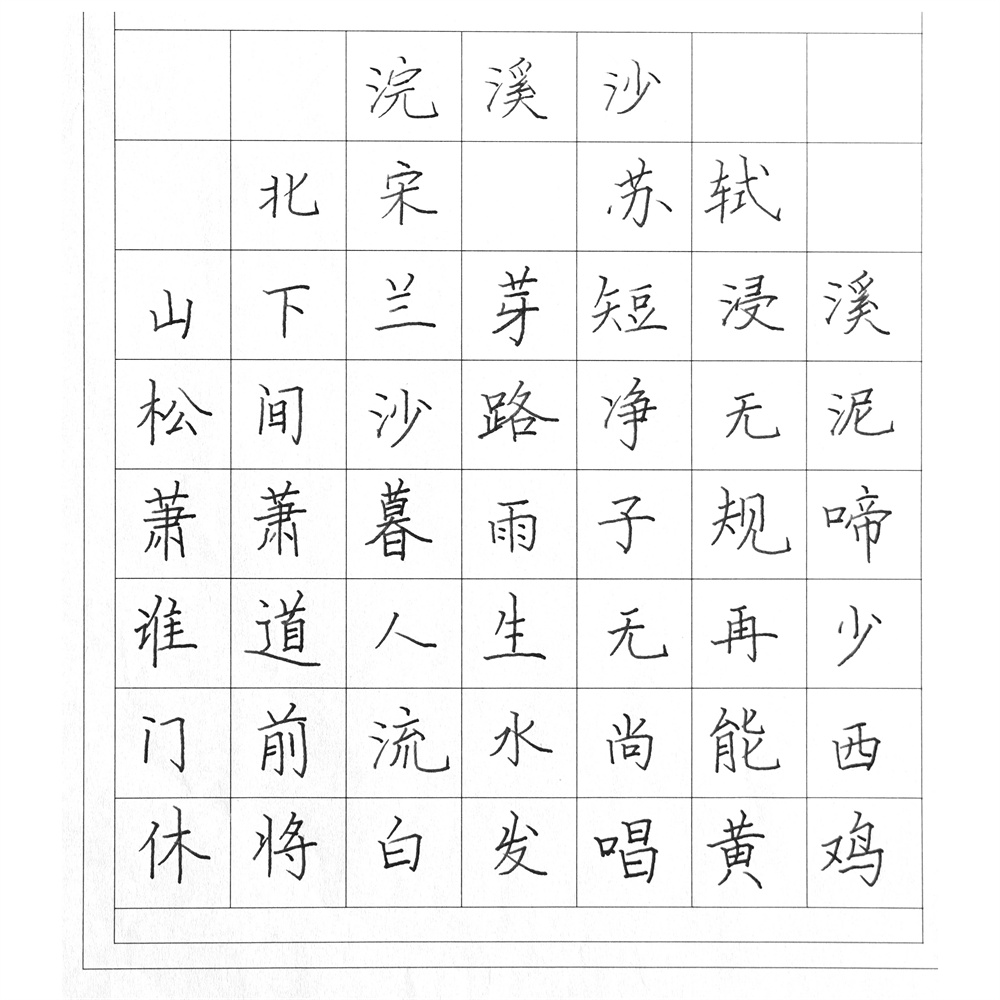 浣溪沙
北宋 苏轼
山下兰芽短浸溪
松间沙路净无泥
萧萧暮雨子规啼
谁道人生无再少
门前流水尚能西
休将白发唱黄鸡